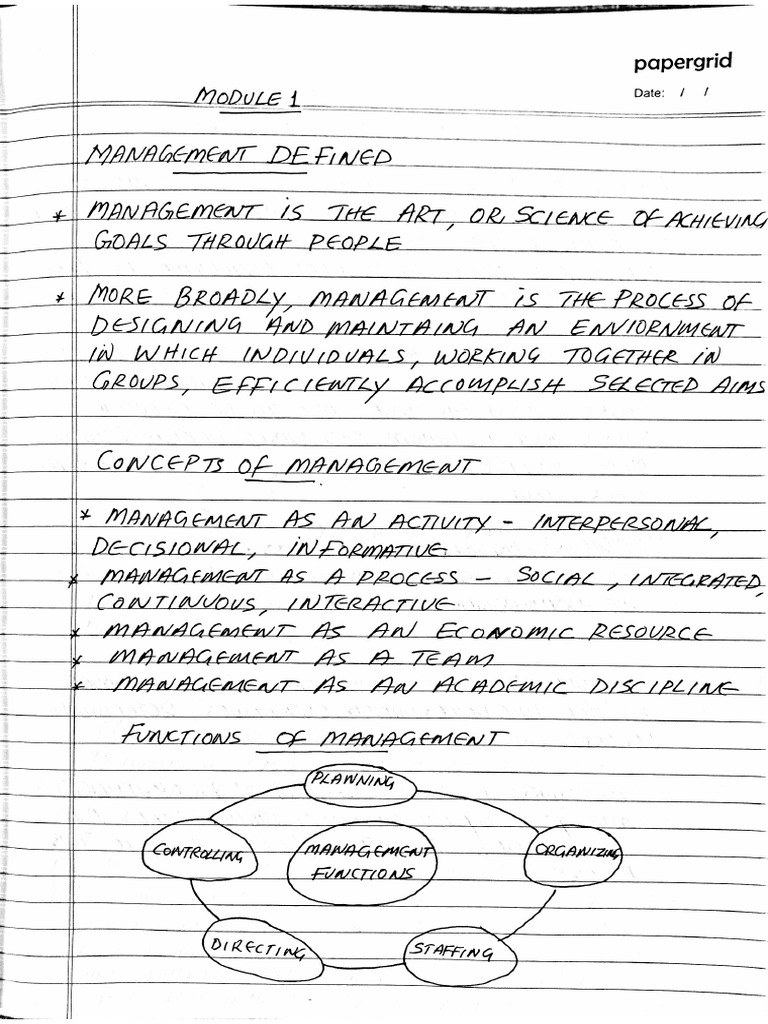 papergrid
Date: / /
MODULE 1
MANAGEMENT DEFINED
* MANAGEMENT IS THE ART, OR SCIENCE OF ACHIEVING
GOALS THROUGH PEOPLE
* MORE BROADLY, MANAGEMENT IS THE PROCESS OF
DESIGNING AND MAINTAING AN ENVIORNMENT
IN WHICH INDIVIDUALS, WORKING TOGETHER IN
GROUPS, EFFICIENTLY ACCOMPLISH SELECTED AIMS
CONCEPTS OF MANAGEMENT
* MANAGEMENT AS AN ACTIVITY - INTERPERSONAL,
DECISIONAL, INFORMATIVE
* MANAGEMENT AS A PROCESS - SOCIAL, INTEGRATED,
CONTINUOUS, INTERACTIVE
* MANAGEMENT AS AN ECONOMIC RESOURCE
* MANAGEMENT AS A TEAM
* MANAGEMENT AS AN ACADEMIC DISCIPLINE
FUNCTIONS OF MANAGEMENT
PLANNING
CONTROLLING
MANAGEMENT
FUNCTIONS
ORGANIZING
DIRECTING
STAFFING